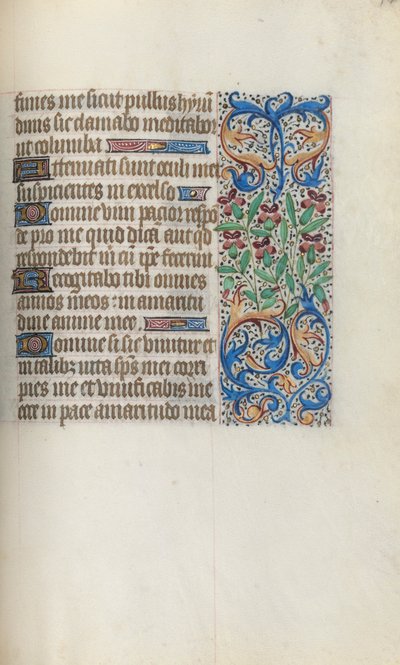 times me sicut pullus hyrun
dinis sic clamabo meditabor
ut columba
Attenuati sunt oculi mei
suspicientes in excelso
Domine vim pacior respo
de pro me quid dicā aut qd
respondebit m cū ipe fecerim
Recogitabo tibi omnes
annos meos: in amaritu
dine anime mee
Domine si sic vivitur et
in talibꝫ vita sps mei corri
pies me et vivificabis me
ecce in pace amaritudo mea